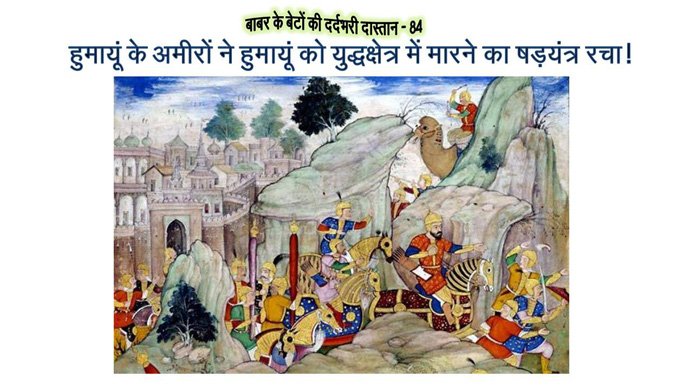 बाबर के बेटों की दर्दभरी दास्तान - 84
हुमायूं के अमीरों ने हुमायूं को युद्धक्षेत्र में मारने का षड़यंत्र रचा!